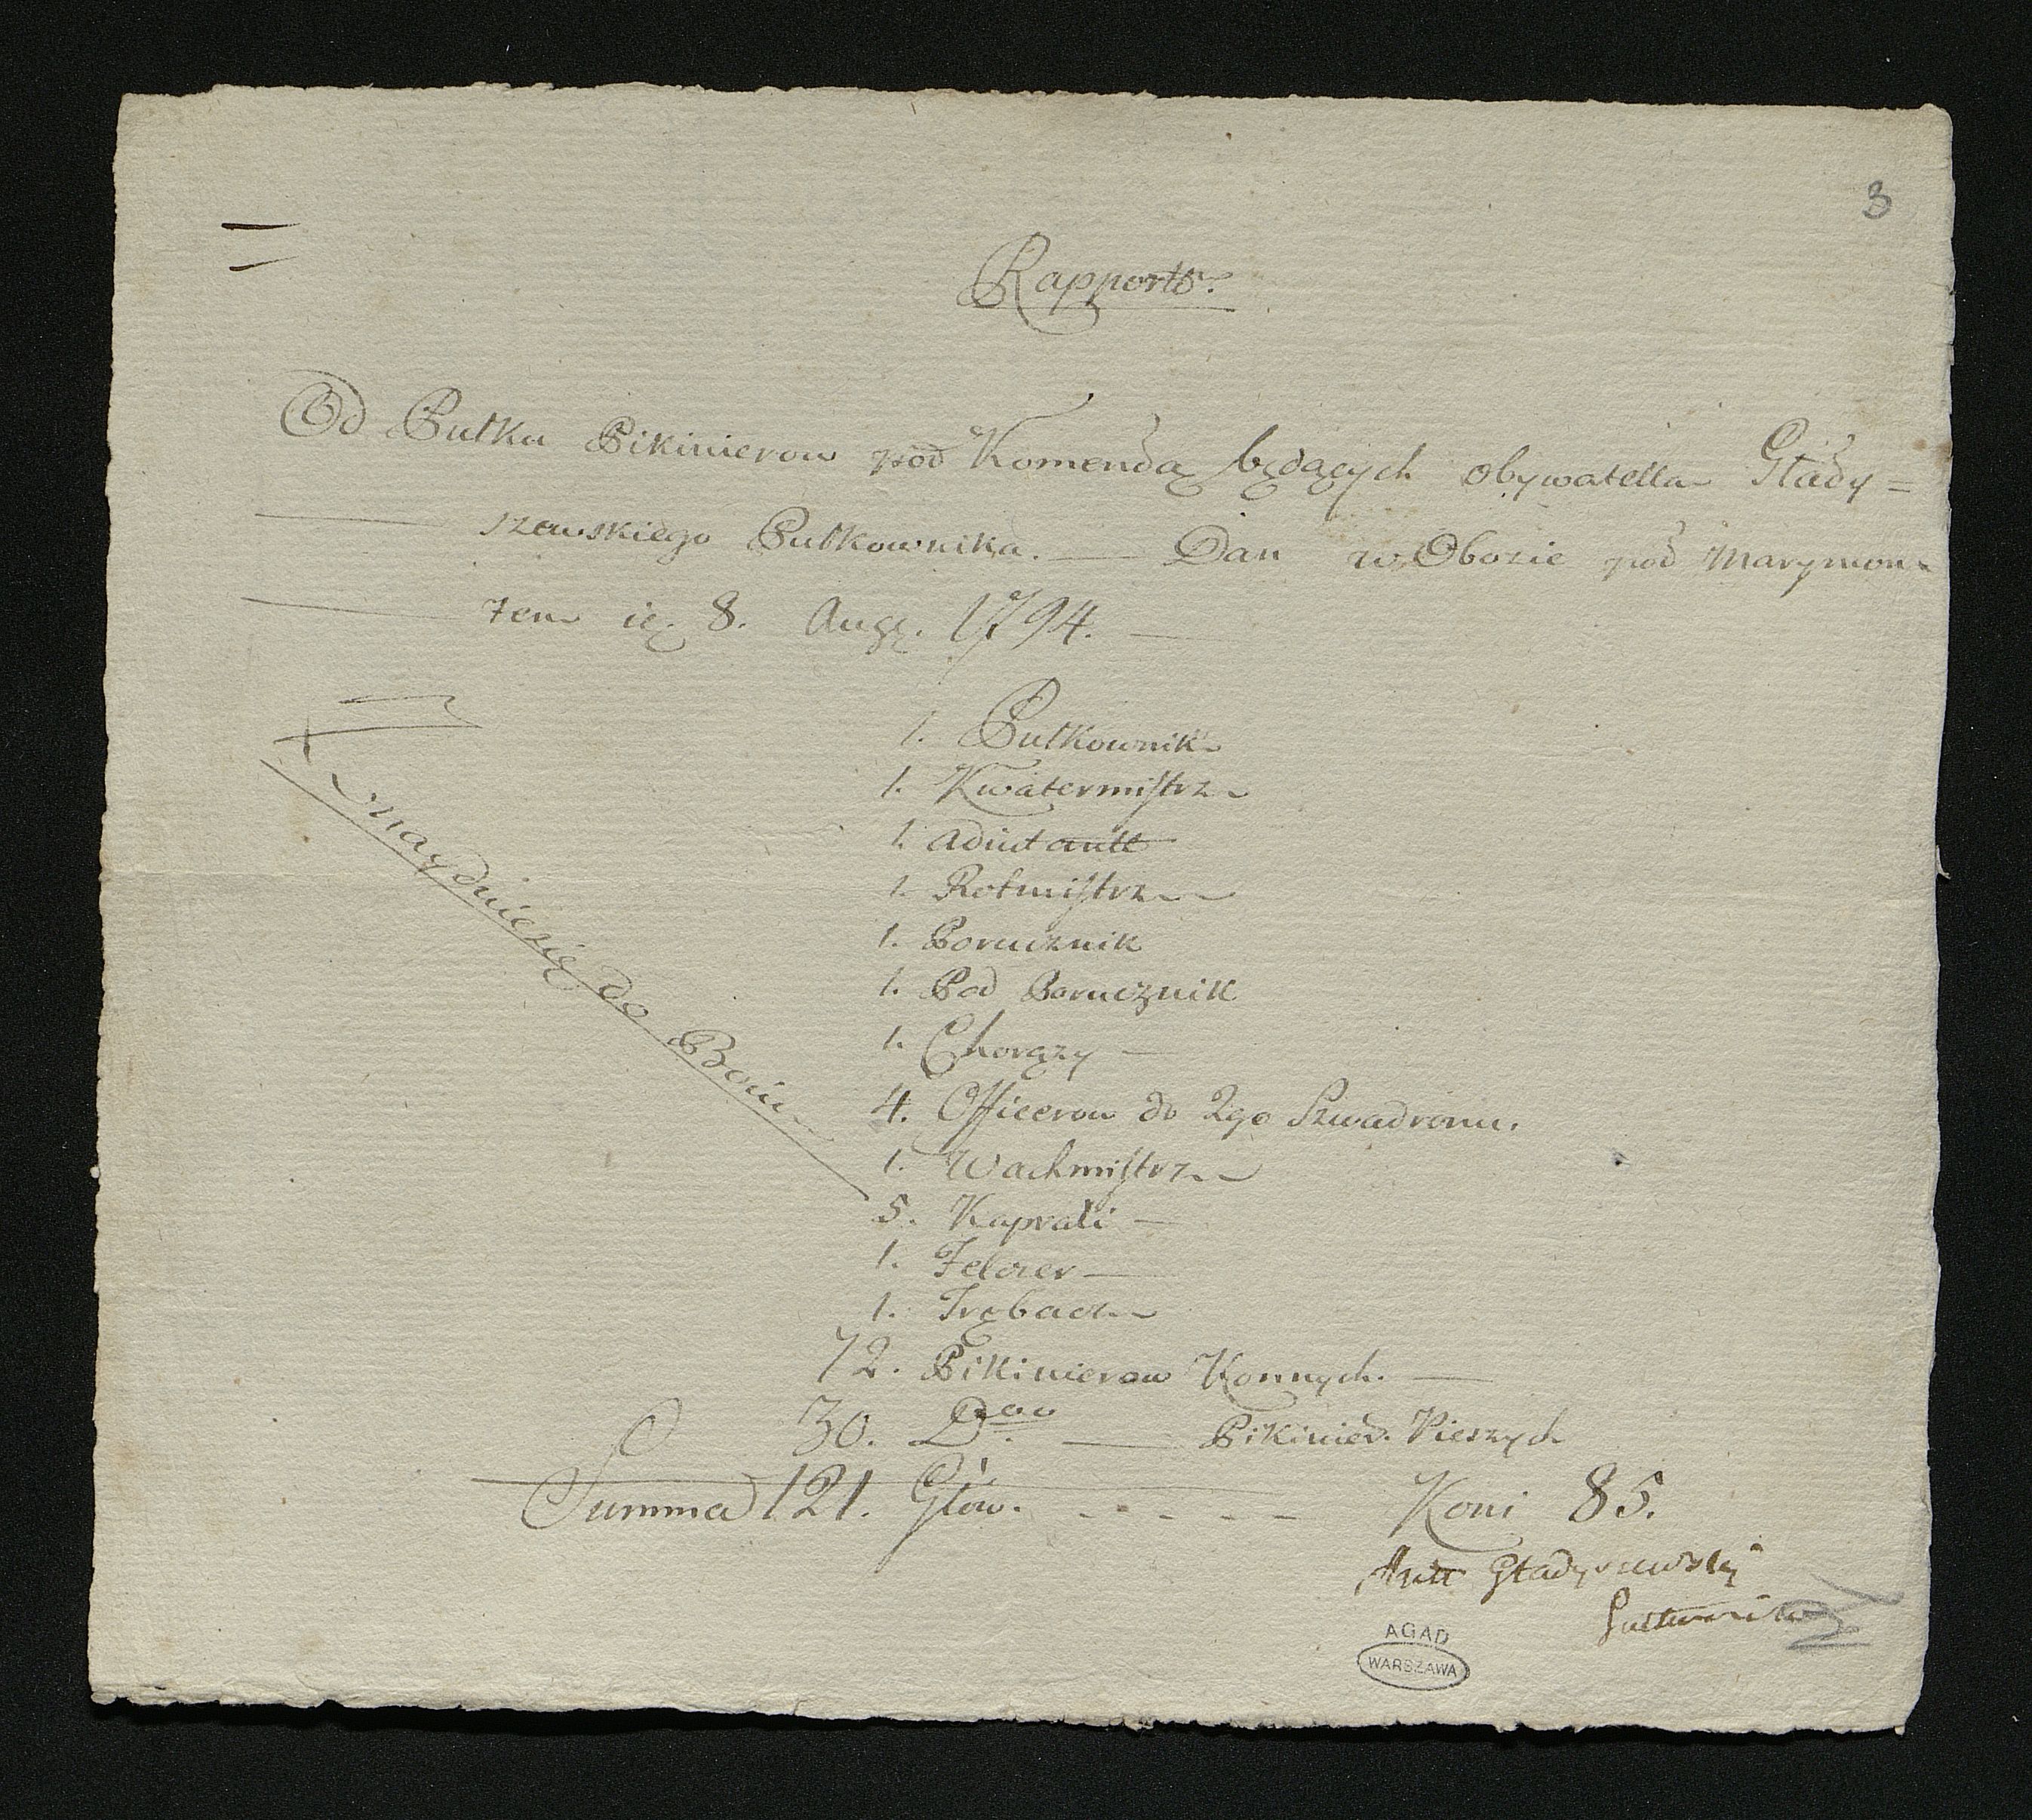 3
Rapport
Od Pułku Pikinierow pod Komendą będących obywatella Głady=
szewskiego Pułkownika. — Dan w Obozie pod Marymon-
tem 8. Aug. 1794. —
Znayduie się do Boiu
1. Pułkownik
1. Kwatermistrz
1. Adiutantt
1. Rotmistrz
1. Porucznik
1. Pod Porucznik
1. Chorązy —
4. Officerow do 2go Szwadronu.
1. Wachmistrz
5. Kaprali —
1. Felczer —
1. Trębacz
72. Pikinierow Konnych. —
30. D. — Pikinier. Pieszych
Summa 121. Głow. - - - - - Koni 85.
Antt Gładyszewski
Pułkownik
AGAD
WARSZAWA